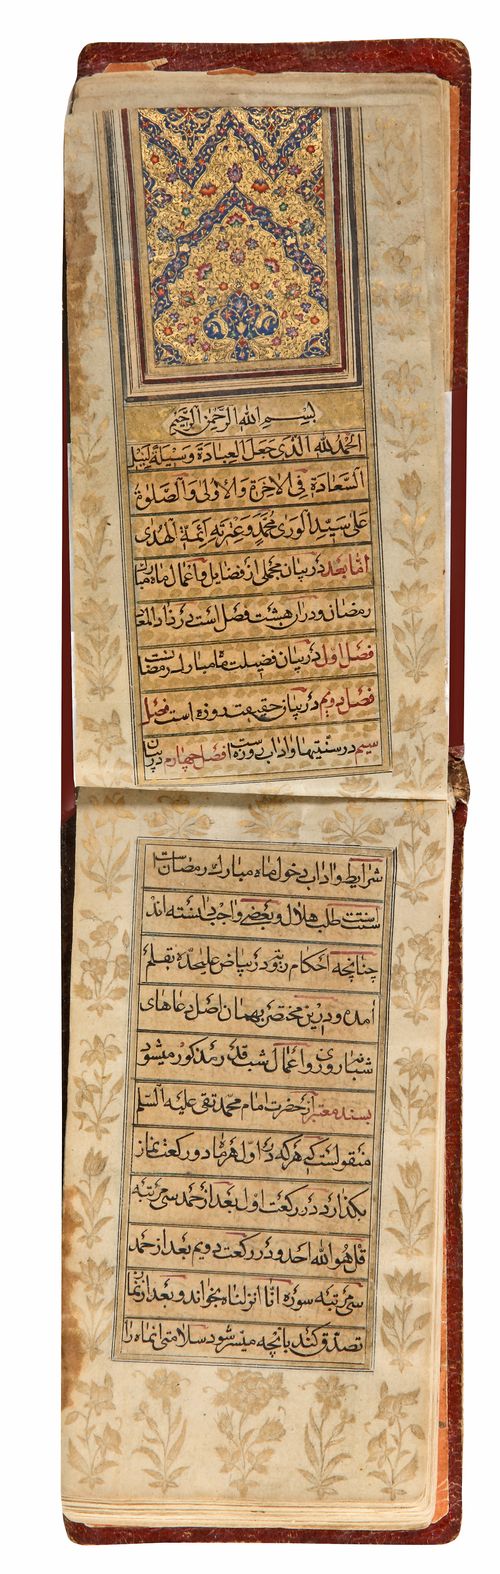 بسم الله الرحمن الرحیم
الحمد لله الذی جعل العبادة وسیلة لنیل
السعادة فی الاخرة والاولی والصلوة
علی سید الوری محمد وعترته ائمة الهدی
اما بعد در بیان مجملی از فضایل و اعمال ماه مبارک
رمضان و در ان هشت فصل است در زاد المعاد
فصل اول در بیان فضیلت ماه مبارک رمضانست
فصل دویم در بیان حقیقت روزه است فصل
سیم در سنتیها و اداب روزه است فصل چهارم در بیان
شرایط و اداب دخول ماه مبارک رمضان است
سنتست طلب هلال و بعضی واجب دانسته اند
چنانچه احکام در بیاض علیحده بقلم
امده و درین مختصر بهمان اصل دعاهای
شبانه روزی و اعمال شب قدر مذکور میشود
بسند معتبر از حضرت امام محمد تقی علیه السلم
منقولست که هر که در اول هر ماه دو رکعت نماز
بکذارد در رکعت اول بعد از حمد سی مرتبه
قل هو الله احد و در رکعت دویم بعد از حمد
سی مرتبه سوره انا انزلناه بخواند و بعد از نماز
تصدق کند بانچه میسر شود سلامتی انماه را